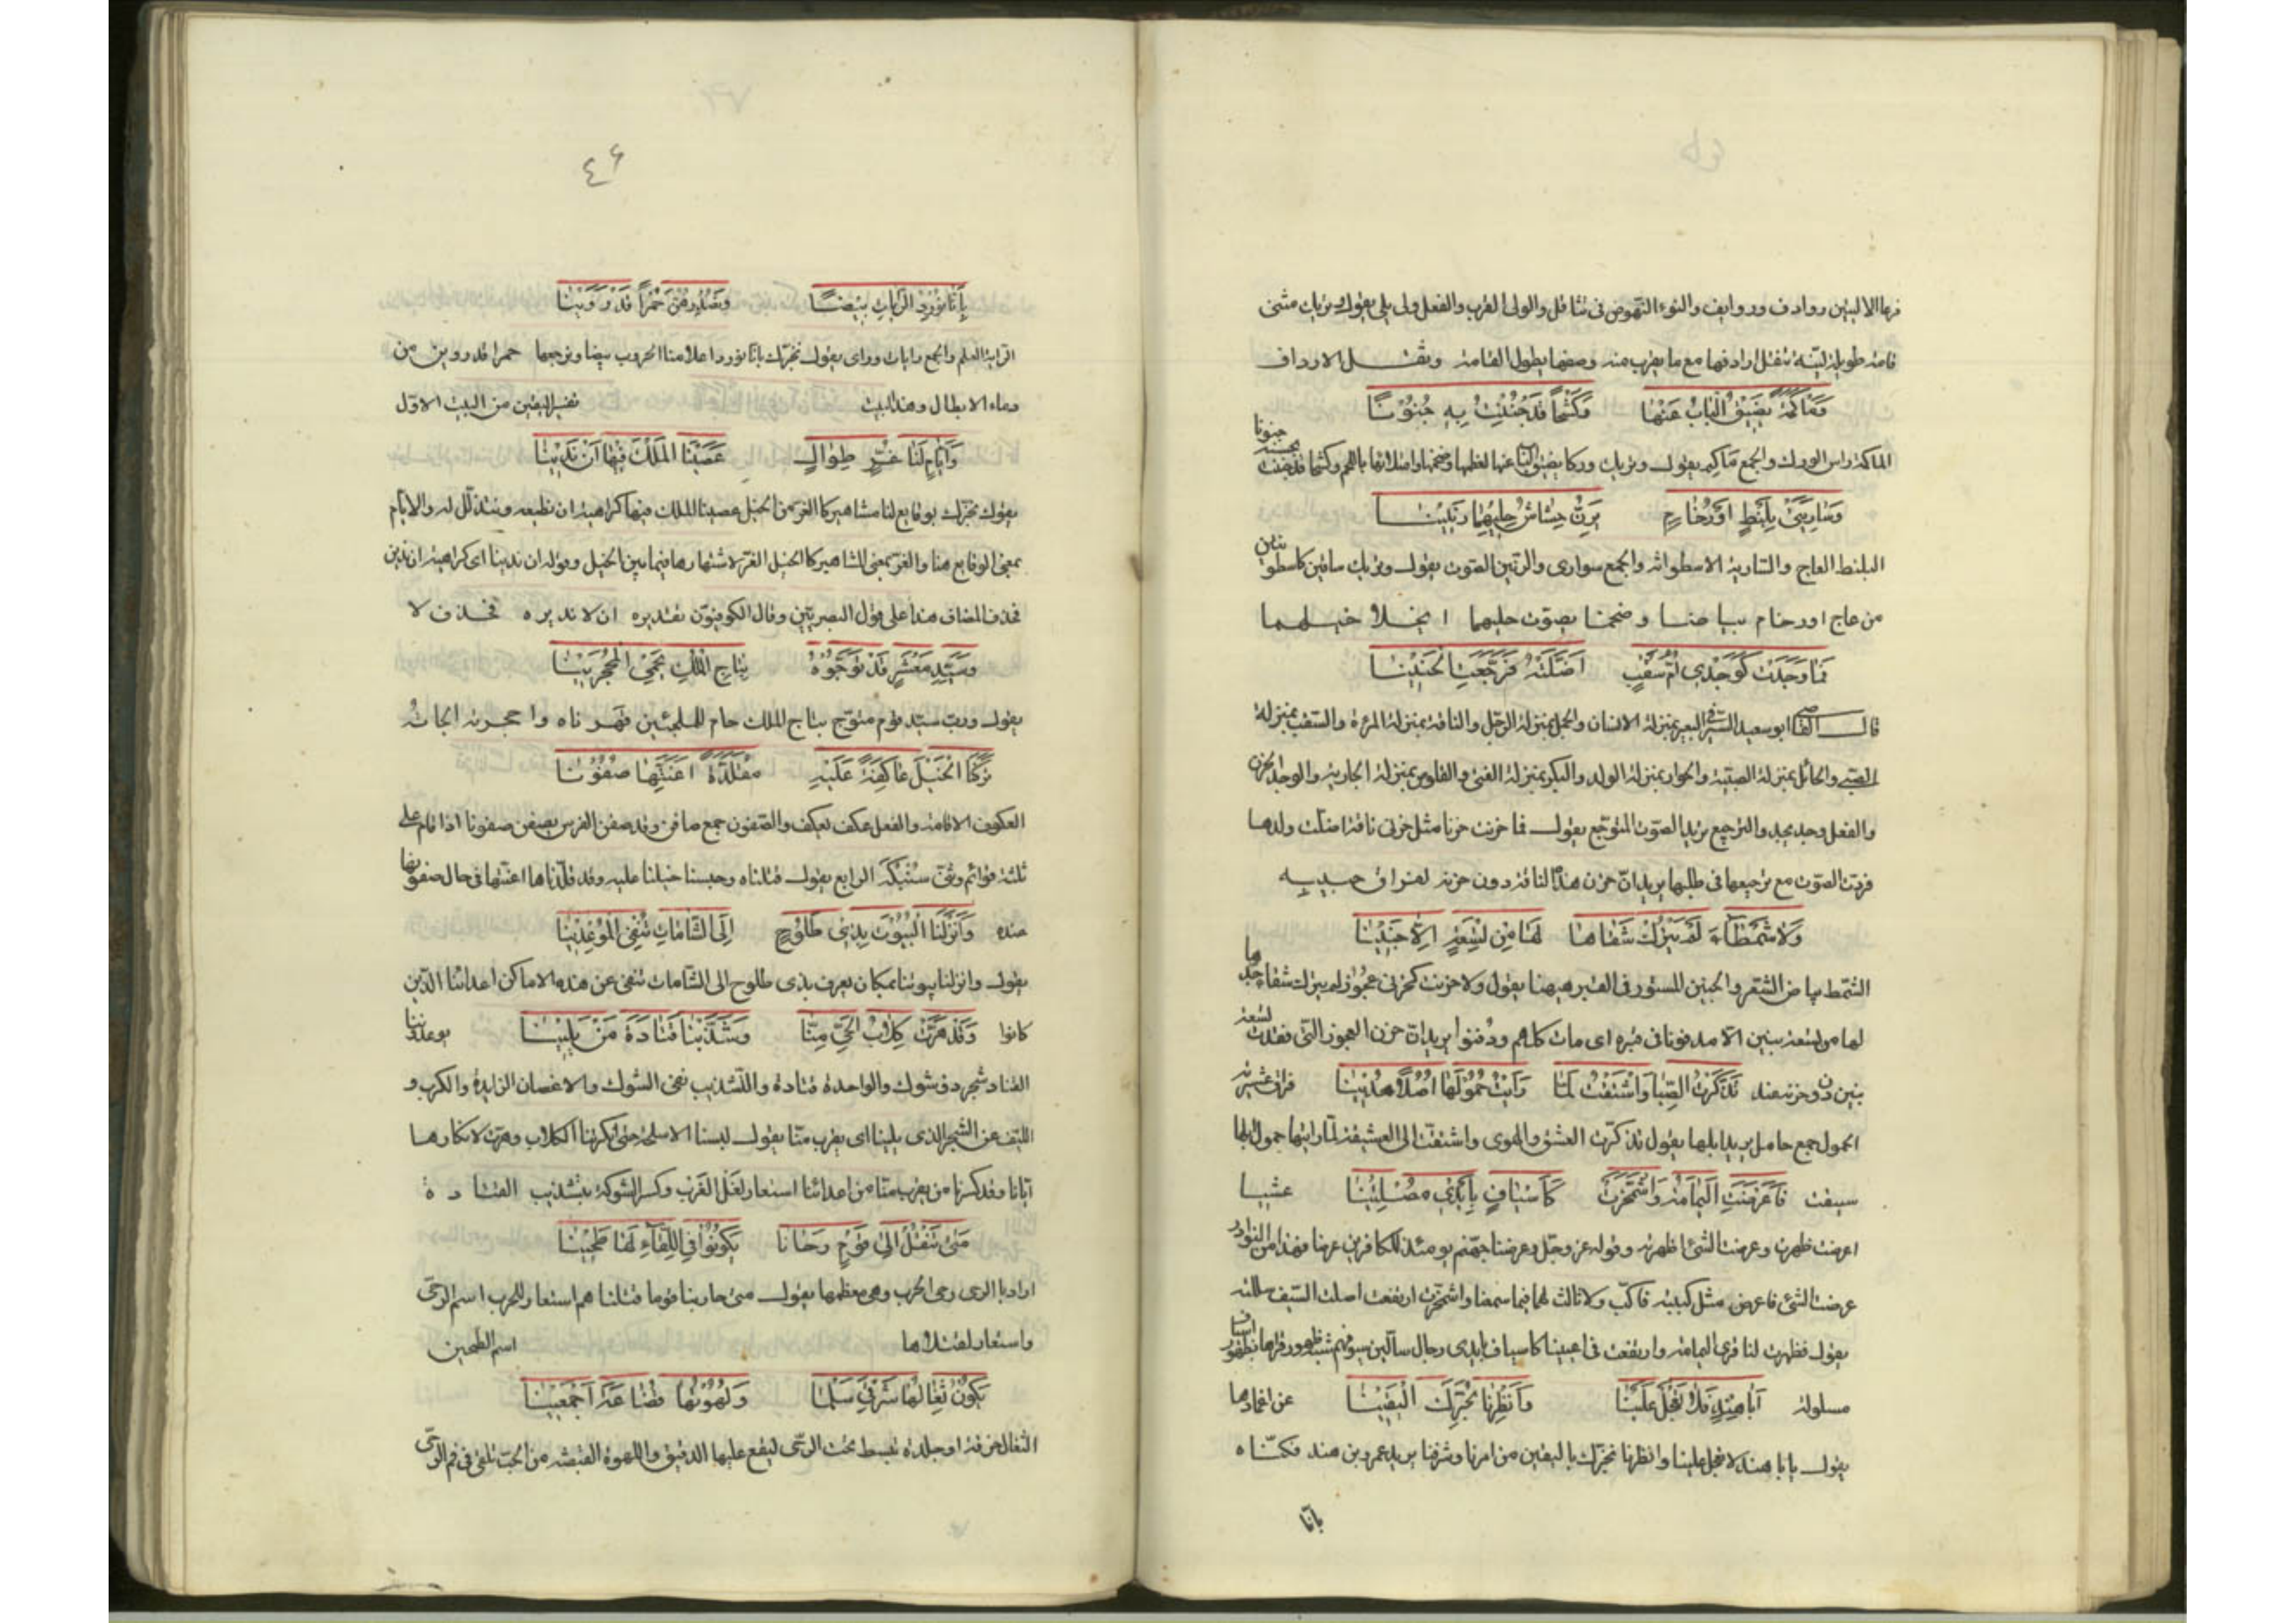 فرعا الاليتين روادف وروانف والنوء النهوض في تثاقل والولى القرب والفعل ولى يلي يقول وتريك متنى
قامة طويلة لينة تثقل اردافها مع ما يقرب منه وصفها بطول القامة وبثقل الارداف
وَمَأكَمَةً يَضِيقُ البَابُ عَنْهَا وَكَشْحًا قَدْ جُنِنْتُ بِهِ جُنُوْنًا
الماكمة راس الورك والجمع مآكم يقول وتريك وركا يضيق الباب عنها لعظمها وضخمها وامتلائها باللحم وكشحا قد جننت بحسنه جنونا
وَسَارِيَتَيْ بِلَنْطٍ اَوْ رُخَامٍ يَرِنُّ خِشَاشُ حَلْيِهِمَا رَنِيْنَا
البلنط العاج والسارية الاسطوانة والجمع سوارى والرنين الصوت يقول وتريك ساقين كاسطوانتين
من عاج او رخام بياضا وضخما يصوت حليهما اي خلاخيلهما
فَمَا وَجَدَتْ كَوَجْدِي اُمُّ سَقْبٍ اَضَلَّتْهُ فَرَجَّعَتِ الْحَنِيْنَا
قال القاضي ابو سعيد السيرافي البعير بمنزلة الانسان والجمل بمنزلة الرجل والناقة بمنزلة المرءة والسقب بمنزلة
الصبي والحائل بمنزلة الصبية والحوار بمنزلة الولد والبكر بمنزلة الفتى والقلوص بمنزلة الجارية والوجد الحزن
والفعل وجد يجد والترجيع ترديد الصوت المتوجع يقول فما حزنت حزنا مثل حزني ناقة اضلت ولدها
فردت الصوت مع ترجيعها في طلبها يريد ان حزن هذه الناقة دون حزنه لفراق حبيبه
وَلَا شَمْطَاءُ لَمْ يَتْرُكْ شَقَاهَا لَهَا مِنْ تِسْعَةٍ اِلَّا جَنِيْنَا
الشمط بياض الشعر والجنين المستور في القبر هيهنا يقول ولا حزنت كحزني عجوز لم يترك شقاء جدها
لها من تسعة بنين الا مدفونا في قبره اى مات كلهم ودفنوا يريد ان حزن العجوز التي فقدت تسعة
بنين دون حزنه عند تَذَكَّرْتُ الصِّبَا وَاشْتَقْتُ لَمَّا رَاَيْتُ حُمُوْلَهَا اُصُلًا حُدِيْنَا فراق عشيرته
الحمول جمع حامل يريد ابلها يقول تذكرت العشق والهوى واشتقت الى العشيقة لما رايتها حمول ابلها
سيقت فَاَعْرَضَتِ اليَمَامَةُ وَاشْمَخَرَّتْ كَاَسْيَافٍ بِاَيْدِي مُصْلِتِيْنَا عشيا
اعرضت ظهرت وعرضت الشئ اظهرته وقوله عز وجل وعرضنا جهنم يومئذ للكافرين عرضا وهذا من النوادر
عرضت الشئ فاعرض مثل كببته فاكب ولا ثالث لهما فيما سمعنا واشمخرت ارتفعت اصلت السيف سللته
يقول فظهرت لنا قرى اليمامة وارتفعت في اعيننا كاسياف بايدى رجال سالين سيوفهم شبه ظهور قراها بظهور اسياف
مسلولة اَبَا هِنْدٍ فَلَا تَعْجَلْ عَلَيْنَا وَاَنْظِرْنَا نُخَبِّرْكَ الْيَقِيْنَا عن اغمادها
يقول يا ابا هند لا تعجل علينا وانظرنا نخبرك باليقين من امرنا وشرفنا يريد عمرو بن هند فكناه
بانا
٤٦
بِاَنَّا نُوْرِدُ الرَّايَاتِ بِيْضًا وَنُصْدِرُهُنَّ حُمْرًا قَدْ رَوِيْنَا
الراية العلم والجمع رايات وراى يقول نخبرك بانا نورد اعلامنا الحروب بيضا ونرجعها حمرا قد روين من
دماء الابطال وهذا البيت تفسير اليقين من البيت الاول
وَاَيَّامٍ لَنَا غُرٍّ طِوَالٍ عَصَيْنَا الْمَلْكَ فِيْهَا اَنْ نَدِيْنَا
يقول نخبرك بوقايع لنا مشاهير كالغر من الخيل عصينا الملك فيها كراهية ان نطيعه ونتذلل له والايام
بمعنى الوقايع هنا والغر بمعنى المشاهير كالخيل الغر لاشتهارها فيما بين الخيل وقوله ان ندينا اى كراهية ان ندين
فحذف المضاف هذا على قول البصريين وقال الكوفيون تقديره ان لا نديره فحذف لا
وَسَيِّدِ مَعْشَرٍ قَدْ تَوَّجُوْهُ بِتَاجِ الْمُلْكِ يَحْمِي الْمُحْجَرِيْنَا
يقول ورب سيد قوم متوج بتاج الملك حام للملجئين قهرناه واحجرته الجاته
تَرَكْنَا الْخَيْلَ عَاكِفَةً عَلَيْهِ مُقَلَّدَةً اَعِنَّتَهَا صُفُوْنَا
العكوف الاقامة والفعل عكف يعكف والصفون جمع صافن وقد صفن الفرس يصفن صفونا اذا قام على
ثلثة قوائم وثنى سنبكه الرابع يقول قتلناه وحبسنا خيلنا عليه وقد قلدناها اعنتها في حال صفونها
عنده وَاَنْزَلْنَا الْبُيُوْتَ بِذِي طُلُوْحٍ اِلَى الشَّامَاتِ نَنْفِي الْمُوْعِدِيْنَا
يقول وانزلنا بيوتنا بمكان يعرف بذى طلوح الى الشامات ننفى عن هذه الاماكن اعدائنا الذين
كانوا وَقَدْ هَرَّتْ كِلَابُ الْحَيِّ مِنَّا وَشَذَّبْنَا قَتَادَةَ مَنْ يَلِيْنَا يوعدوننا
القتاد شجر ذو شوك والواحدة قتادة والتشذيب نفى الشوك والاغصان الزايدة والكرب و
الليف عن الشجر الذى يلينا اى يقرب منا يقول لبسنا الاسلحة حتى انكرتنا الكلاب وهرت لانكارها
ايانا وقد كسرنا من يقرب منا من اعدائنا استعار لفل الغرب وكسر الشوكة بتشذيب القتادة
مَتَى نَنْقُلْ اِلَى قَوْمٍ رَحَانَا يَكُوْنُوْا فِي اللِّقَاءِ لَهَا طَحِيْنَا
اراد بالرحى رحى الحرب وهى معظمها يقول متى حاربنا قوما قتلناهم استعار للحرب اسم الرحى
واستعار لقتلاها اسم الطحين
يَكُوْنُ ثِفَالُهَا شَرْقِيَّ سَلْمَا وَلُهْوَتُهَا قُضَاعَةَ اَجْمَعِيْنَا
الثفال خرقة او جلدة تبسط تحت الرحى ليقع عليها الدقيق واللهوة القبضة من الحب تلقى في فم الرحى